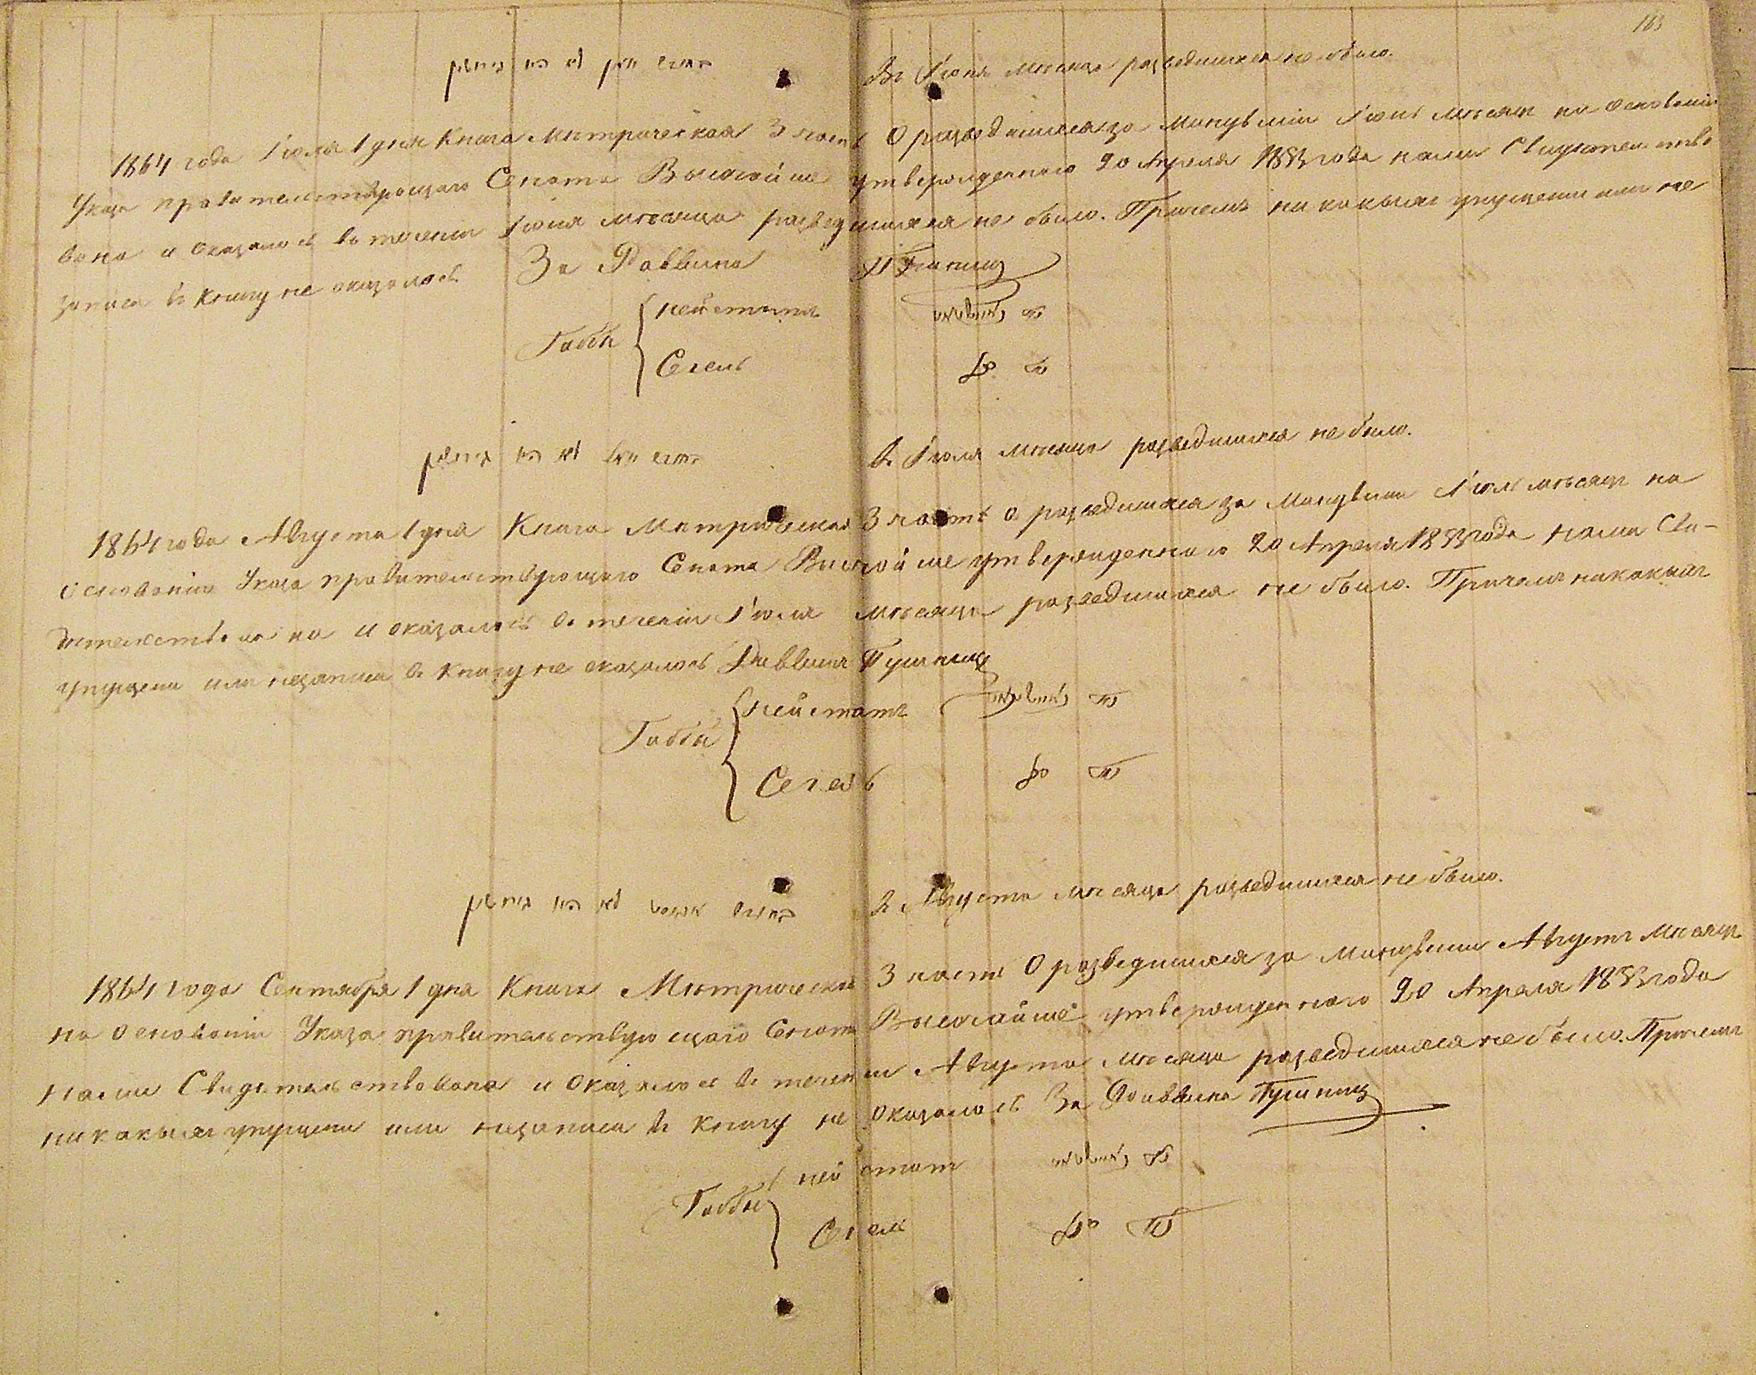 163
בחודש יוני לא היו גירושין
Въ Іюнѣ мѣсяце разведшихся не было.
1864 года Іюля 1 дня Книга Метрическая 3 часть О разведшихся за минувшій Іюнь мѣсяцъ на основаніи
Указа правительствующаго Сената Высочайше утвержденнаго 20 Апреля 1835 года нами Свидетельство
вана и оказалось въ теченіи Іюня мѣсяца разведшихся не было. Причемъ никакихъ упущеній или не
записи въ книгу не оказалось За Раввина
Габбы Нейштатъ
Сегень
בחודש יולי לא היו גירושין
В Іюля мѣсяце разведшихся не было.
1864 года Августа 1 дня Книга Метрическая 3 часть о разведшихся за минувшій Іюль мѣсяцъ на
основаніи Указа правительствующаго Сената Высочайше утвержденнаго 20 Апреля 1835 года нами Сви-
детельствована и оказалось въ теченіи Іюля мѣсяца разведшихся не было. Причемъ никакихъ
упущеній или незаписи въ книгу не оказалось Раввинъ
Габбы Нейштатъ
Сегень
בחודש אוגוסט לא היו גירושין
В Августа мѣсяце разведшихся не было.
1864 года Сентября 1 дня Книга Метрическая 3 часть О разведшихся за минувшій Августъ мѣсяцъ
на основаніи Указа правительствующаго Сената Высочайше утвержденнаго 20 Апреля 1835 года
нами Свидетельствована и оказалось въ теченіи Августа мѣсяца разведшихся не было. Причемъ
никакихъ упущеній или незаписи въ книгу не оказалось За Раввина
Габбы Нейштат
Сегень